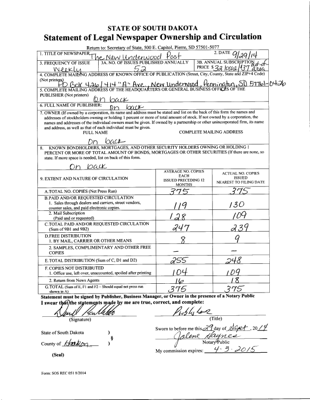 STATE OF SOUTH DAKOTA
Statement of Legal Newspaper Ownership and Circulation
Return to: Secretary of State, 500 E. Capitol, Pierre, SD 57501-5077
1. TITLE OF NEWSPAPER The New Underwood Post
2. DATE 9/29/14
3. FREQUENCY OF ISSUE Weekly
3A. NO. OF ISSUES PUBLISHED ANNUALLY 52
3B. ANNUAL SUBSCRIPTION PRICE
4. COMPLETE MAILING ADDRESS OF KNOWN OFFICE OF PUBLICATION (Street, City, County, State and ZIP+4 Code)
(Not printers) PO Box 426 / 414 "A" Ave, New Underwood, Pennington, SD 57761-0426
5. COMPLETE MAILING ADDRESS OF THE HEADQUARTERS OR GENERAL BUSINESS OFFICES OF THE
PUBLISHER (Not printers) On back
6. FULL NAME OF PUBLISHER: On back
7. OWNER (If owned by a corporation, its name and address must be stated and list on the back of this form the names and
addresses of stockholders owning or holding 1 percent or more of total amount of stock. If not owned by a corporation, the
names and addresses of the individual owners must be given. If owned by a partnership or other unincorporated firm, its name
and address, as well as that of each individual must be given.
FULL NAME COMPLETE MAILING ADDRESS
On back
8. KNOWN BONDHOLDERS, MORTGAGEES, AND OTHER SECURITY HOLDERS OWNING OR HOLDING 1
PERCENT OR MORE OF TOTAL AMOUNT OF BONDS, MORTGAGES OR OTHER SECURITIES (If there are none, so
state. If more space is needed, list on back of this form.
On back
9. EXTENT AND NATURE OF CIRCULATION
AVERAGE NO. COPIES EACH ISSUED PRECEDING 12 MONTHS
ACTUAL NO. COPIES ISSUED NEAREST TO FILING DATE
A. TOTAL NO. COPIES (Net Press Run) 375 375
B. PAID AND/OR REQUESTED CIRCULATION
1. Sales through dealers and carriers, street vendors, counter sales, and paid electronic copies. 119 130
2. Mail Subscription (Paid and or requested) 128 109
C. TOTAL PAID AND/OR REQUESTED CIRCULATION (Sum of 9B1 and 9B2) 247 239
D. FREE DISTRIBUTION
1. BY MAIL, CARRIER OR OTHER MEANS 8 9
2. SAMPLES, COMPLIMENTARY AND OTHER FREE COPIES — —
E. TOTAL DISTRIBUTION (Sum of C, D1 and D2) 255 248
F. COPIES NOT DISTRIBUTED
1. Office use, left over, unaccounted, spoiled after printing 104 109
2. Return from News Agents 16 18
G. TOTAL (Sum of E, F1 and F2 - Should equal net press run shown in A) 375 375
Statement must be signed by Publisher, Business Manager, or Owner in the presence of a Notary Public
I swear that the statements made by me are true, correct, and complete:
(Signature) (Title)
State of South Dakota )
County of Haakon )
§
Sworn to before me this 29 day of Sept, 2014
Notary Public
(Seal)
My commission expires: 4-3-2015